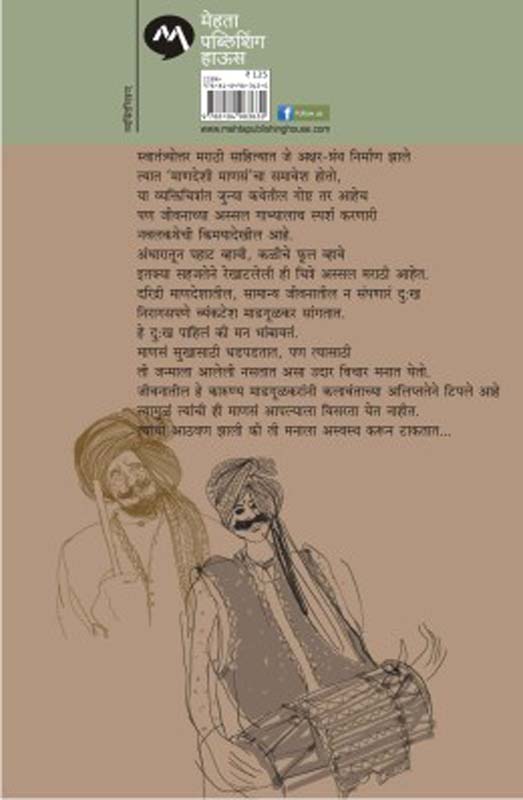 मेहता
पब्लिशिंग
हाऊस
₹ 125
Follow us
www.mehtapublishinghouse.com
व्यक्तिचित्रण
स्वातंत्र्योत्तर मराठी साहित्यात जे अक्षर-ग्रंथ निर्माण झाले
त्यात 'माणदेशी माणसं'चा समावेश होतो,
या व्यक्तिचित्रांत जुन्या कथेतील गोष्ट तर आहेच
पण जीवनाच्या अस्सल गाभ्यालाच स्पर्श करणारी
नवलकथेची किमयादेखील आहे.
अंधारातून पहाट व्हावी, कळीचे फूल व्हावे
इतक्या सहजतेने रेखाटलेली ही चित्रे अस्सल मराठी आहेत.
दरिद्री माणदेशातील, सामान्य जीवनातील न संपणारं दु:ख
निरागसपणे व्यंकटेश माडगूळकर सांगतात.
हे दु:ख पाहिलं की मन थांबायतं.
माणसं सुखासाठी धडपडतात, पण त्यासाठी
ती जन्माला आलेली नसतात असा उदार विचार मनात येतो.
जीवनातील हे कारुण्य माडगूळकरांनी कलावंताच्या अलिप्ततेने टिपले आहे
त्यामुळं त्यांची ही माणसं आपल्याला विसरता येत नाहीत.
त्यांची आठवण झाली की ती मनाला अस्वस्थ करून टाकतात...